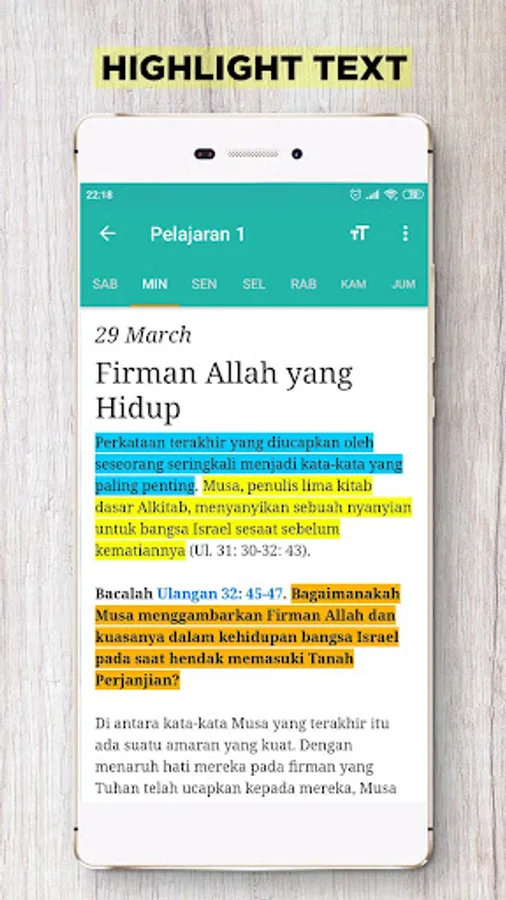 HIGHLIGHT TEXT
22:18
Pelajaran 1
SAB MIN SEN SEL RAB KAM JUM
29 March
Firman Allah yang
Hidup
Perkataan terakhir yang diucapkan oleh
seseorang seringkali menjadi kata-kata yang
paling penting. Musa, penulis lima kitab
dasar Alkitab, menyanyikan sebuah nyanyian
untuk bangsa Israel sesaat sebelum
kematiannya (Ul. 31: 30-32: 43).
Bacalah Ulangan 32: 45-47. Bagaimanakah
Musa menggambarkan Firman Allah dan
kuasanya dalam kehidupan bangsa Israel
pada saat hendak memasuki Tanah
Perjanjian?
Di antara kata-kata Musa yang terakhir itu
ada suatu amaran yang kuat. Dengan
menaruh hati mereka pada firman yang
Tuhan telah ucapkan kepada mereka, Musa